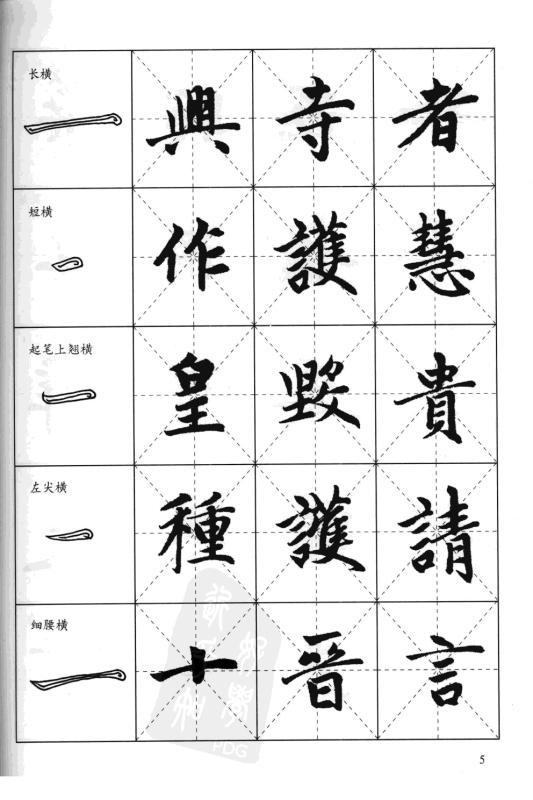 长横
興 寺 者
短横
作 護 慧
起笔上翘横
皇 毀 貴
左尖横
種 護 請
细腰横
十 晋 言
PDG
5